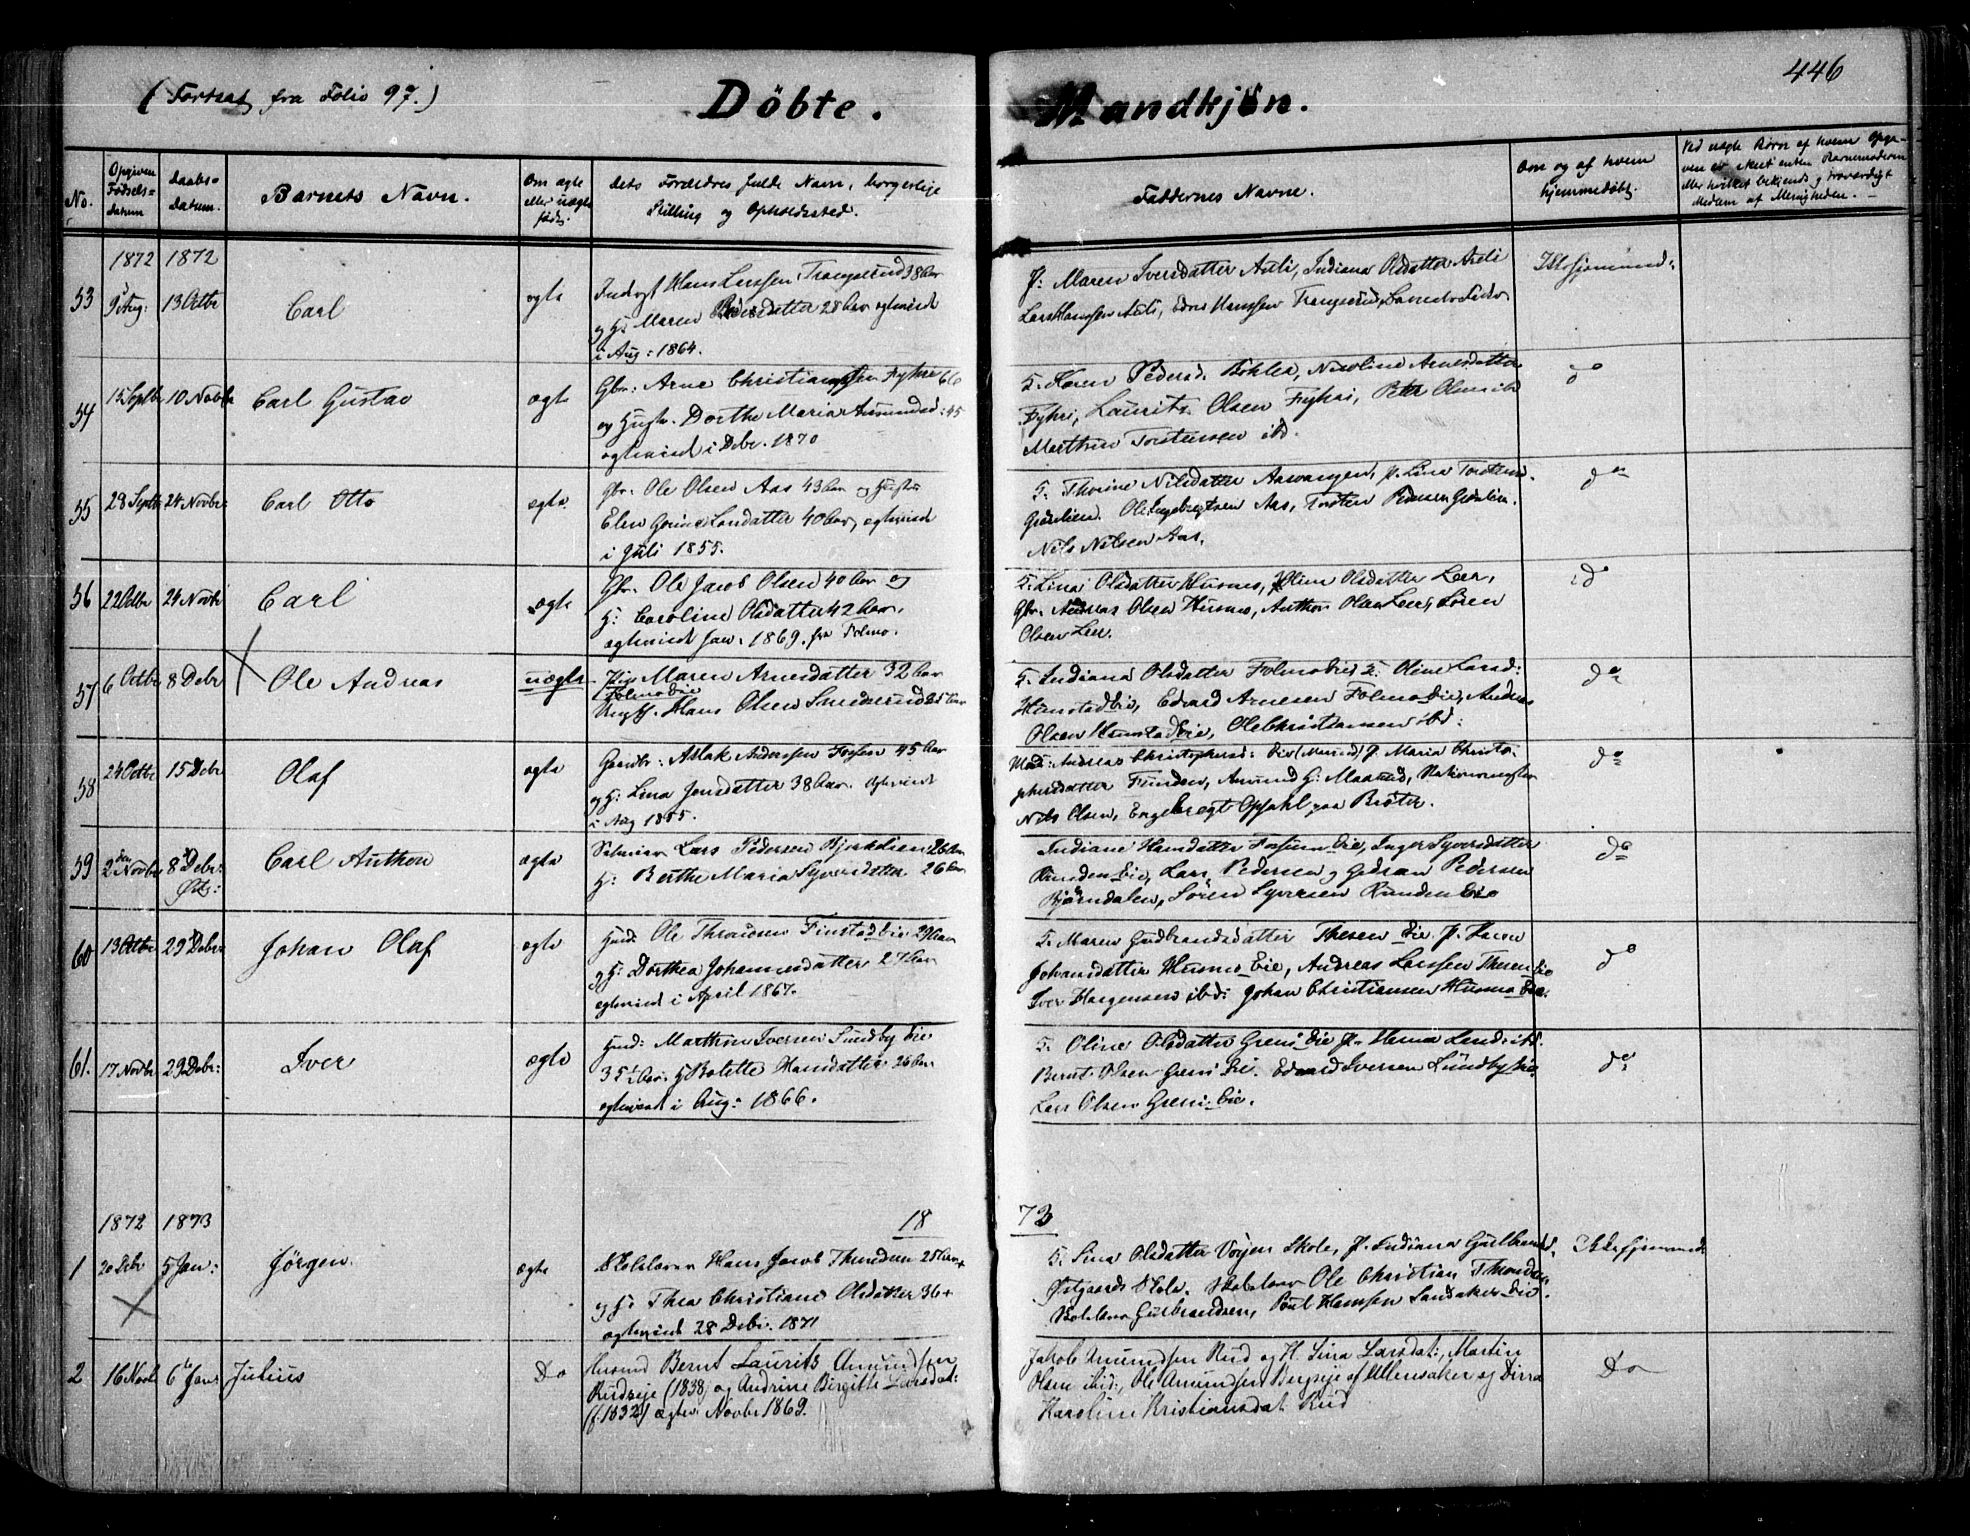 (Fortsat fra Folio 97.)
Döbte. Mandkjön.
446
No.
Opgiven Födsels-datum
Daabs-datum.
Barnets Navn.
Om ægte eller uægte født.
Dets Forældres fulde Navn, borgerlige
Stilling og Opholdssted.
Faddernes Navne.
Om og af hvem
hjemmedøbt.
Ved uægte Børn af hvem Opgi-
ven er skeet enten Barnemoderen
eller hvilket bekjendt og troværdigt
Medlem af Menigheden.
1872 1872
53 9 Aug: 13 Octbr Carl ægte
Hans Larssen Trangsrud 38 Aar
og H: Maren Pedersdatter 28 Aar ægteviede
i Aug: 1864.
P: Maren Iversdatter Asli, Indiana Olsdatter Asli
Lars Hanssen Asli, Hanssen Trangsrud,
Ikke hjemmed:
54 15 Septbr 10 Novbr Carl Gustav ægte
Gbr: Arne Christiansen Fyhri 66
og Hustr. Dorthe Maria Amundsd: 45
ægteviede i Debr. 1870
F. Karen Pedersd. Bøhler, Nicoline Arnesdatter
Fyhri, Laurits Olsen Fyhri, Peter Olsen ibd
Marthin Torstensen ibd.
do
55 28 Septbr 24 Novbr: Carl Otto ægte
Gbr. Ole Olsen Aas 43 Aar og Hustru
Elen Larsdatter 40 Aar, ægteviede
i Juli 1855.
F. Thorine Nilsdatter Aasvangen, P. Lina Torstensd.
Græslien. Ole Ingebregtsen Aas, Torsten Pedersen Græslien.
Nils Nilsen Aas.
do
56 22 Octbr 24 Novbr Carl ægte
Gbr. Ole Jacob Olsen 40 Aar og
H: Caroline Olsdatter 42 Aar.
ægteviede Jan. 1869. fra Folmo.
F. Lina Olsdatter Husmo, P. Oline Olsdatter Leer,
Gbr. Andreas Olsen Husmo, Anthon Olsen Leer, Søren
Olsen Leer.
do
57 6 Octbr 8 Debr Ole Andreas uægte
Pig. Maren Arnesdatter 32 Aar
Folmoeie
Ungk. Hans Olsen Sanderud 25 Aar
F. Indiana Olsdatter Folmoeie, F. Oline Larsd:
Hunstadeie, Edvard Arnesen Folmoeie, Andreas
Olsen Hunstadeie, Ole Christiansen ibd:
do
58 24 Octbr 15 Debr Olaf ægte
Gaardbr: Aslak Andersen Fossen 45 Aar
og H: Lina Jensdatter 38 Aar. ægteviede
i Aug 1855.
Mad: Andreas Christophersd: Eie (Mesund) P. Maria Christo-
phersdatter Funden, Amund G: Maarud, Stationsmester
Nils Olsen, Engebregt Opsahl paa Brøter.
do
59 2den Novbr 8 Debr: Østg: Carl Anthon ægte
Selveier Lars Pedersen Bjørkelien 26 Aar
H: Berthe Maria Syversdatter 26 Aar
Indiane Hansdatter Fossum Eie, Inger Syversdatter
Runden Eie, Lars Pedersen og Gudram Pedersen
Bjørndalen, Søren Syversen Runden Eie
do
60 13 Octbr 29 Debr: Johan Olaf ægte
Husd: Ole Thronsen Finstad eie 29 Aar
og H: Dorthea Johannesdatter 27 Aar
ægteviede i April 1867.
F. Maren Gudbrandsdatter Thesen Eie. P. Karen
Johansdatter Husmo Eie, Andreas Larssen Thesen Eie
Iver Hargensen ibd: Johan Christiansen Husmo Eie.
do
61. 17 Novbr 29 Debr: Iver ægte
Husd: Marthin Iversen Sundby Eie
35½ Aar. H Bolette Hansdatter 26 Aar
ægteviede i Aug: 1866.
F. Oline Olsdatter Greni Eie P. Hanna Larsd: ibd.
Bernt Olsen Greni Eie. Edvard Iversen Sundby Eie
Lars Olsen Greni Eie.
do
1872 1873
18 73
1 20 Debr 5 Jan: Jørgen ægte
Skolelærer Hans Jacob Thundsen 25 Aar
og H: Thea Christiane Olsdatter 36
ægteviede 28 Debr. 1871
F. Lina Olsdatter Vøyen Skole, P. Indiana Gulbrands.
Østgaards Skole. Skolelærer Ole Christian Thundsen
Skolelærer Gulbrandsen, Poul Hansen Sandaker Eie.
Ikke hjemmed:
2 16 Novbr 6te Jan: Julius Do
Husmd Bernt Laurits Amundsen
Rudseie (1838) og Andrine Birgitte Larsdat:
(f. 1832) ægtev. Novbr 1869.
Jakob Amundsen Rud og H. Lina Larsdat:, Martin
Olsen ibid:, Ole Amundsen Bergseie af Ullensaker og Pige
Karoline Kristiansdat Rud
Do